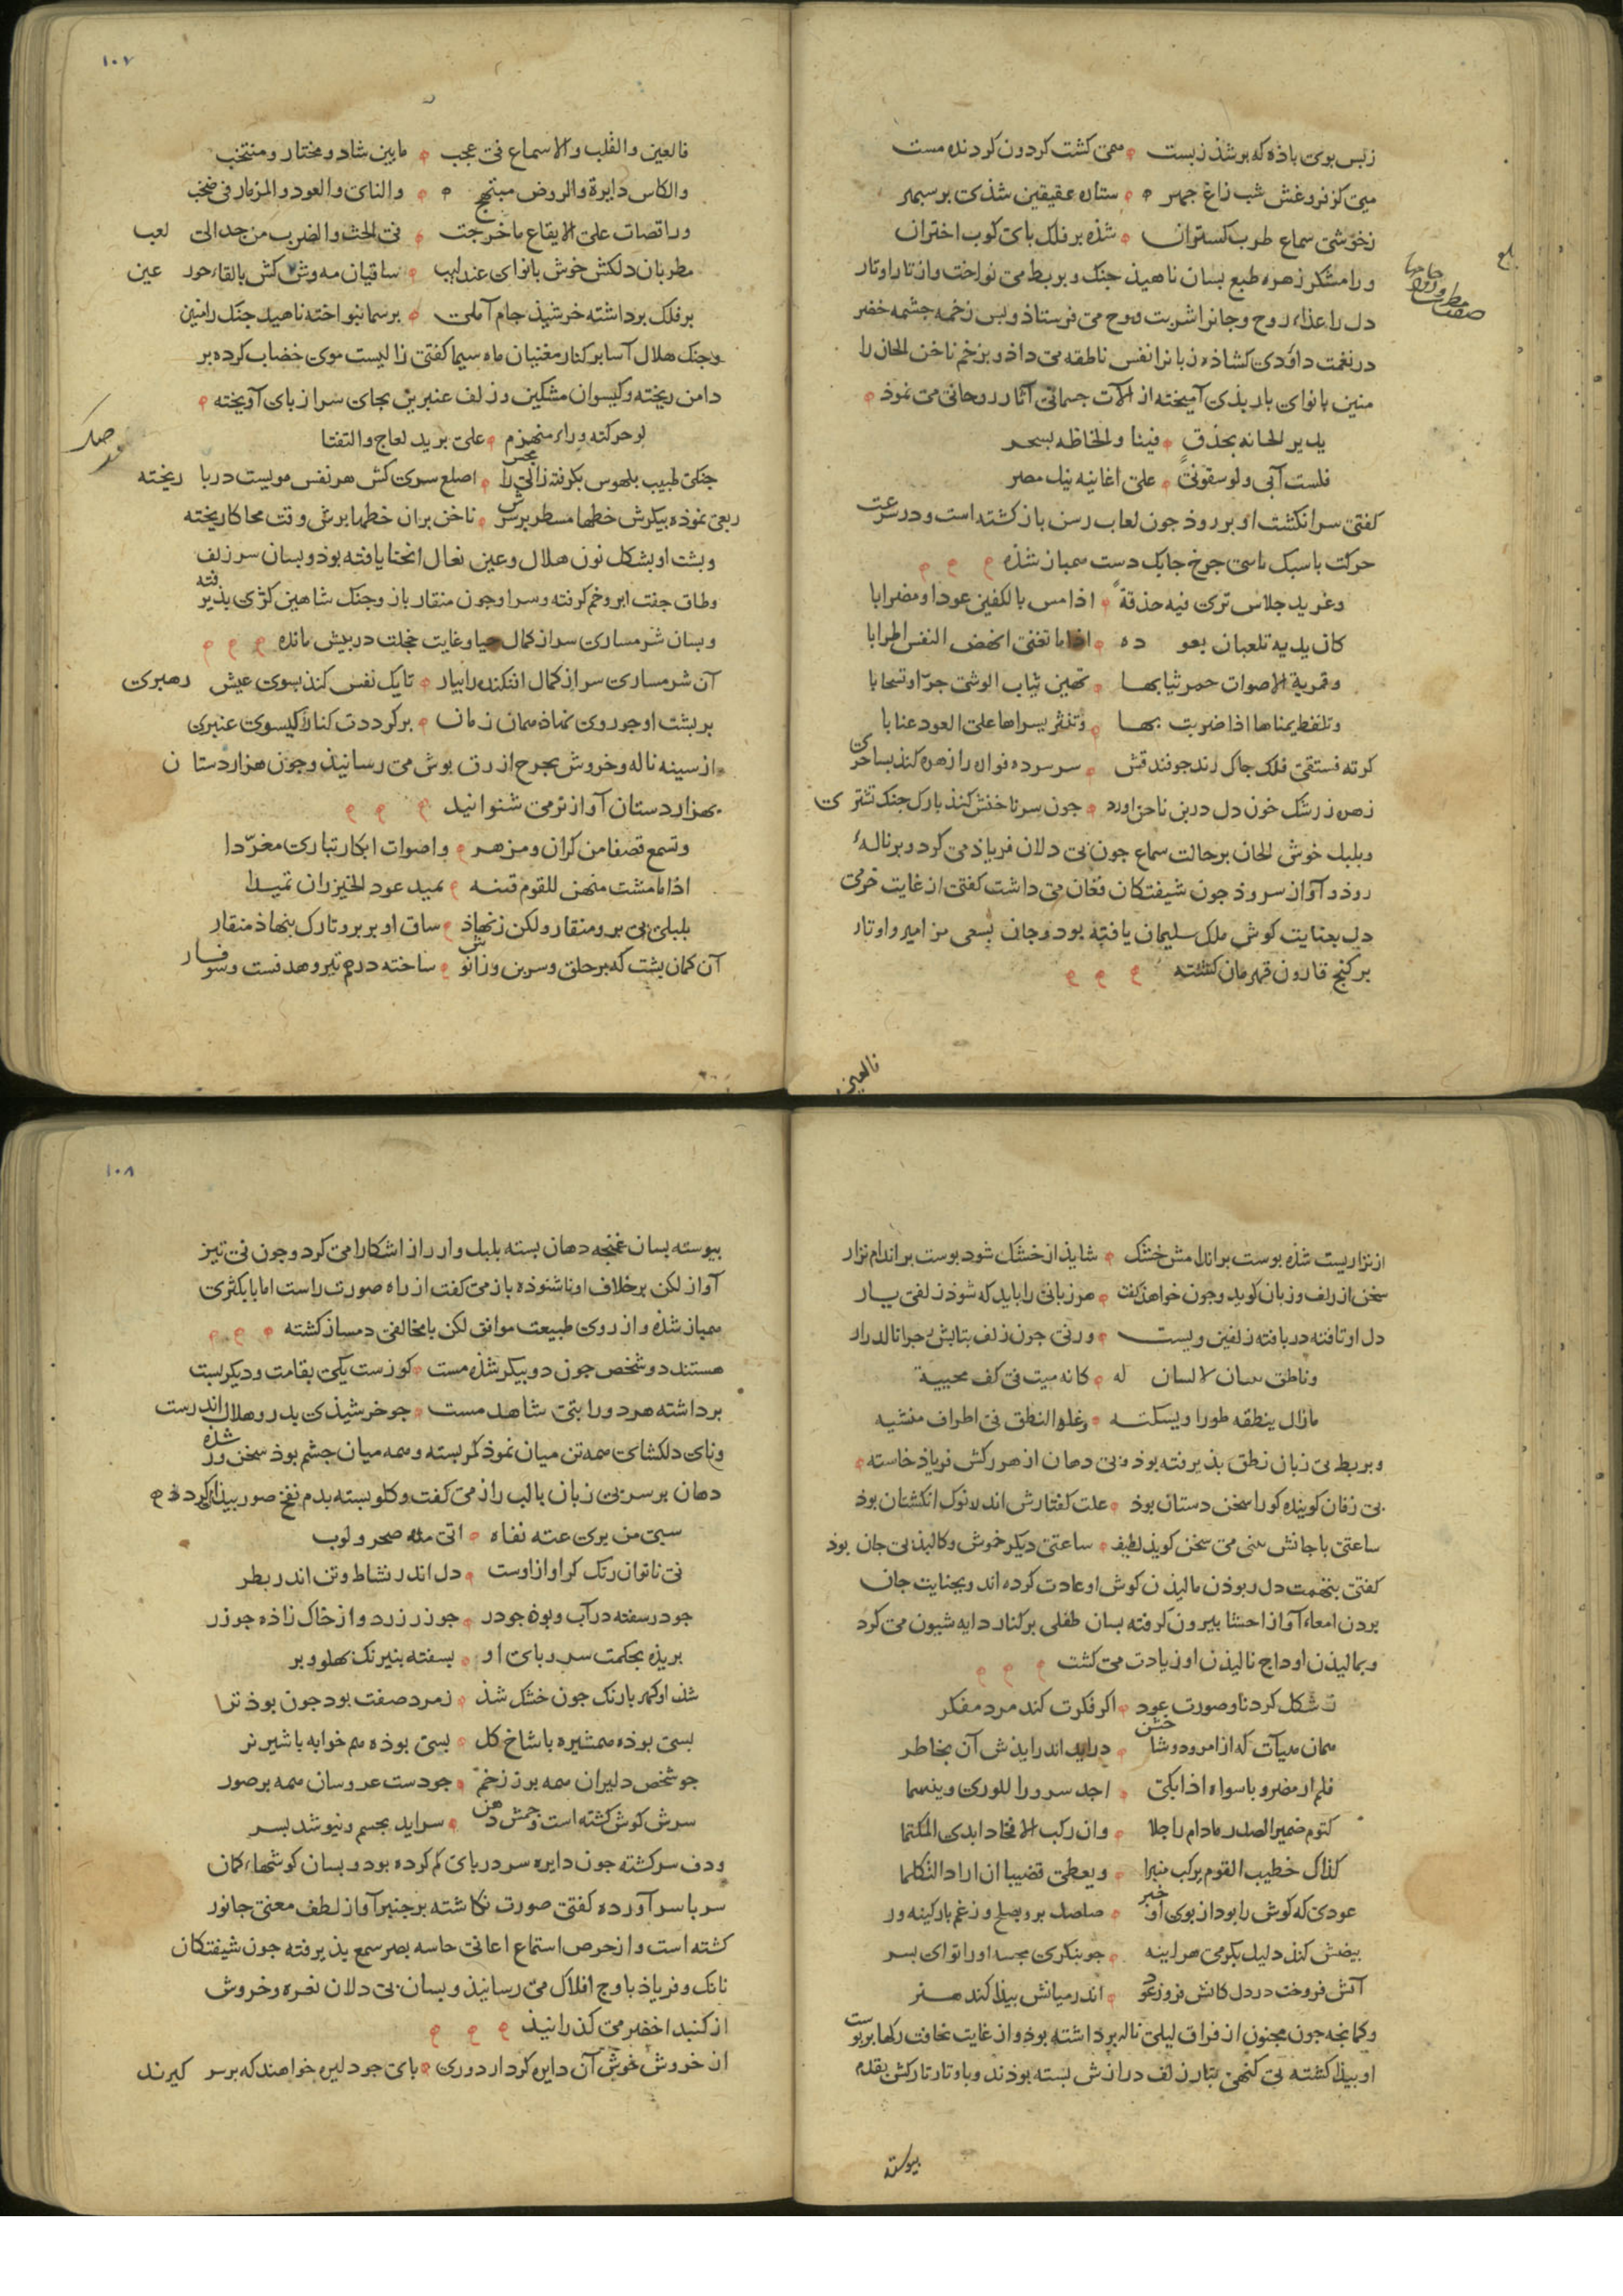 زبس بوی باذه که بر شذ زبست همی کشت کردون کردنده مست
میی کز فروغش شب زاغ جهر ستاره عقیقین شذی بر سبهر
زخوشی سماع طرب کستران شذه بر فلک بای کوب اختران
و رامشکر زهره طبع بسان ناهیذ جنک و بربط می نواخت و از تار اوتار
دل را غذاء روح و جانرا شربت می فرستاذ و بس زخمه جشمه خضر
در نغمت داؤدی کشاذه زبانرا نفس ناطقه می داذ و بزخم ناخن الحان را
منین بانوای باربذی آمیخته از آلات جسمانی آثار روحانی می نموذ
یدیر الحانه بحذق فینا و الحاظه بسحر
فلست آبی ولو سقونی علی اغانیه نیل مصر
کفتی سر انکشت او بر روذ جون لعاب رسن باز کشته است و در سرعت
حرکت با سبک بای جرخ جابک دست همباز شذه
وغرید جلاس تری فیه حذقة اذا مس بالکفین عودا ومضرابا
کان یدیه تلعبان بعوده اذا ما تغنی انهض النفس اطرابا
وقمریة الاصوات حمر ثیابها تهین ثیاب الوشی جرا وتسحابا
وتلقط یمناها اذا ضربت بها وتنثر یسراها علی العود عنابا
کرته فستقی فلک جاک زند جو فندقش سر سرده فواره را زهره کند بساحری
زهره ز رشک خون دل در بن ناخن اورد جون سر ناخنش کند با رک جنک نشتری
و بلبل خوش الحان بر حالت سماع جون بی دلان فریاذ می کرد و بر نالهٔ
روذ و آواز سروذ جون شیفتکان فغان می داشت کفتی از غایت خرمی
دل بعنایت کوش ملک سلیمان یافته بود و جان بسعی مزامیر و اوتار
بر کنج قارون قهرمان کشته
فالعین
صفت مطربان و
١٠٧
فالعین والقلب والاسماع فی عجب مابین شاد ومختار ومنتخب
والکاس دایرة والروض مبتهج والنای والعود والمزمار فی صخب
وراقصات علی الایقاع ما خرجت فی الحث والضرب من جد الی لعب
مطربان دلکش خوش بانوای عندلیب ساقیان مه وش کش بالقاء حور عین
بر فلک برداشته خرشیذ جام آملی بر سما بنواخته ناهید جنک رامنین
و جنک هلال آسا بر کنار مغنیان ماه سیما کفتی زالیست موی خضاب کرده بر
دامن ریخته و کیسوان مشکین و زلف عنبرین بجای سر از بای آویخته
لو حرکته وراء منهزم علی برید لعاج والتفتا
جنکی طبیب بلهوس بکرفته زالی را اصلع سری کش هر نفس مویست در با ریخته
ربعی نموذه بیکرش خطها مسطر برسرش ناخن بران خطها برش وقت محاکا ریخته
و بشت او بشکل نون هلال و عین نعال انحنا یافته بوذ و بسان سر زلف
و طاق جفت ابرو خم کرفته و سر او جون منقار باز و جنک شاهین کژی بذیرفته
و بسان شرمساری سر از کمال حیا و غایت خجلت در بیش مانده
آن شرمساری سر از کمال افکنده را بیار تا یک نفس کند بسوی عیش رهبری
بر بشت او جو روی نماذ همان زمان بر کرددت کنار کیسوی عنبری
از سینه ناله و خروش بجرخ ازرق بوش می رسانیذ و جون هزاردستان
بهزار دستان آواز تر می شنوانید
وتسمع قصفا من کران ومزهر واصوات ابکار تباری مغردا
اذا ما مشت منهن للقوم قینه یمید عود الخیزران تمیدا
بلبلی بی بر و منقار ولکن زنهاذ ساق او بر بر و تارک بنهاذ منقار
آن کمان بشت که بر حلق و سرین و زانوش ساخته درهم تیر و هدفست و سوفار
از نزاریست شذه بوست براندامش خشک شاید از خشک شود بوست براندام نزار
سخن از زلف و زبان کوید و جون خواهذ کفت هر زبانی را باید که شود زلفی یار
دل او تافته در بافته زلفین ویست ورنی جون زلف بتابش جرا نالد زار
وناطق بلسان لا لسان له کانه میت فی کف محییه
مازال ینطقه طورا ویسکته وعلة النطق فی اطراف منشیه
و بربط بی زبان نطق بذیرفته بوذ و بی دهان از هر رکش فریاذ خاسته
بی زفان کوینده کورا سخن دستان بوذ علت کفتارش اندر نوک انکشتان بوذ
ساعتی با جانش بینی می سخن کویذ لطیف ساعتی دیکر خموش و کالبذ بی جان بوذ
کفتی بتهمت دل ربوذن مالیذن کوش او عادت کرده اند و بجنایت جان
بردن امعاء آواز احشا بیرون کرفته بسان طفلی بر کنار دایه شیون می کرد
و بمالیذن اوداج نالیذن او زیادت می کشت
تشکل کردنا و صورت عود اکر فکرت کند مرد مفکر
همان هیآت که از امرود و شاخش دراید اندر ایذش آن بخاطر
فلم ار مضروبا سواه اذا بکی اجد سرورا للوری وینعما
کتوم ضمیر الصدر مادام راجلا وان رکب الافخاد ابدی المکتما
کذاک خطیب القوم یرکب منبرا ویعطی قضیبا ان اراد التکلما
عودی که کوش را بود از بوی او خبر صلصل برو بصلح و زغم بار کینه ور
بیضش کند دلیل بکرمی هراینه جو بنکری بجسه او را نوای بسر
آتش فروخت در دل کانش فروز عود اندر میانش بیذا کند هنر
و کمانجه جون مجنون از فراق لیلی ناله برداشته بوذ و از غایت نحافت رکها بر بوست
او بیذا کشته بی کنهی بتار زلف درازش بسته بوذند و باوتار تارکش بقدم
بیوسته
١٠٨
بیوسته بسان غنجه دهان بسته بلبل وار راز اشکارا می کرد و جون نی تیز
آواز لکن بر خلاف او ناشنوذه باز می کفت از راه صورت راست اما با بکثری
همباز شذه و از روی طبیعت موافق لکن با مخالفی دمساز کشته
هستند دو شخص جون دو بیکر شذه مست کوزست یکی بقامت و دیکر بست
برداشته هر دو را بتی شاهد مست جو خرشیذی بدر و هلال اندر دست
و نای دلکشای همه تن میان نموذ کمر بسته و همه میان جشم بوذ سخن ور شذه
دهان بر سر بی زبان بالب راز می کفت و کلو بسته بدم نفخ صور بیذا می کرد
سبی من یری عته نفاه اتی مده صحر ولوب
نی ناتوان رنک کر اواز اوست دل اندر نشاط و تن اندر بطر
جو در سفته در آب و بوذه جو در جو زر زرد و از خاک زاذه جو زر
بریذه بحکمت سر و بای او بسفته بنیرنک بهلو و بر
شذ او کهربا رنک جون خشک شذ زمرد صفت بود جون بوذ تر
بسی بوذه همشیره با شاخ کل بسی بوذه هم خوابه با شیر نر
جو شخص دلیران همه بر ز زخم جو دست عروسان همه بر صور
سرش کوش کشته است و جمش دهن سراید بجسم و نیوشد بسر
و دف سرکشته جون دایره سر در بای کم کرده بود و بسان کوشهاء کمان
سر با سر آورده کفتی صورت نکاشته بر جنبر آواز لطف معنی جانور
کشته است و از حرص استماع اغانی حاسه بصر سمع بذیرفته جون شیفتکان
بانک و فریاذ باوج افلاک می رسانیذ و بسان بی دلان نعره و خروش
از کنبد اخضر می کذرانیذ
از خروش خوش آن دایره کردار دوری بای جو دلیره خواهند که بر سر کیرند